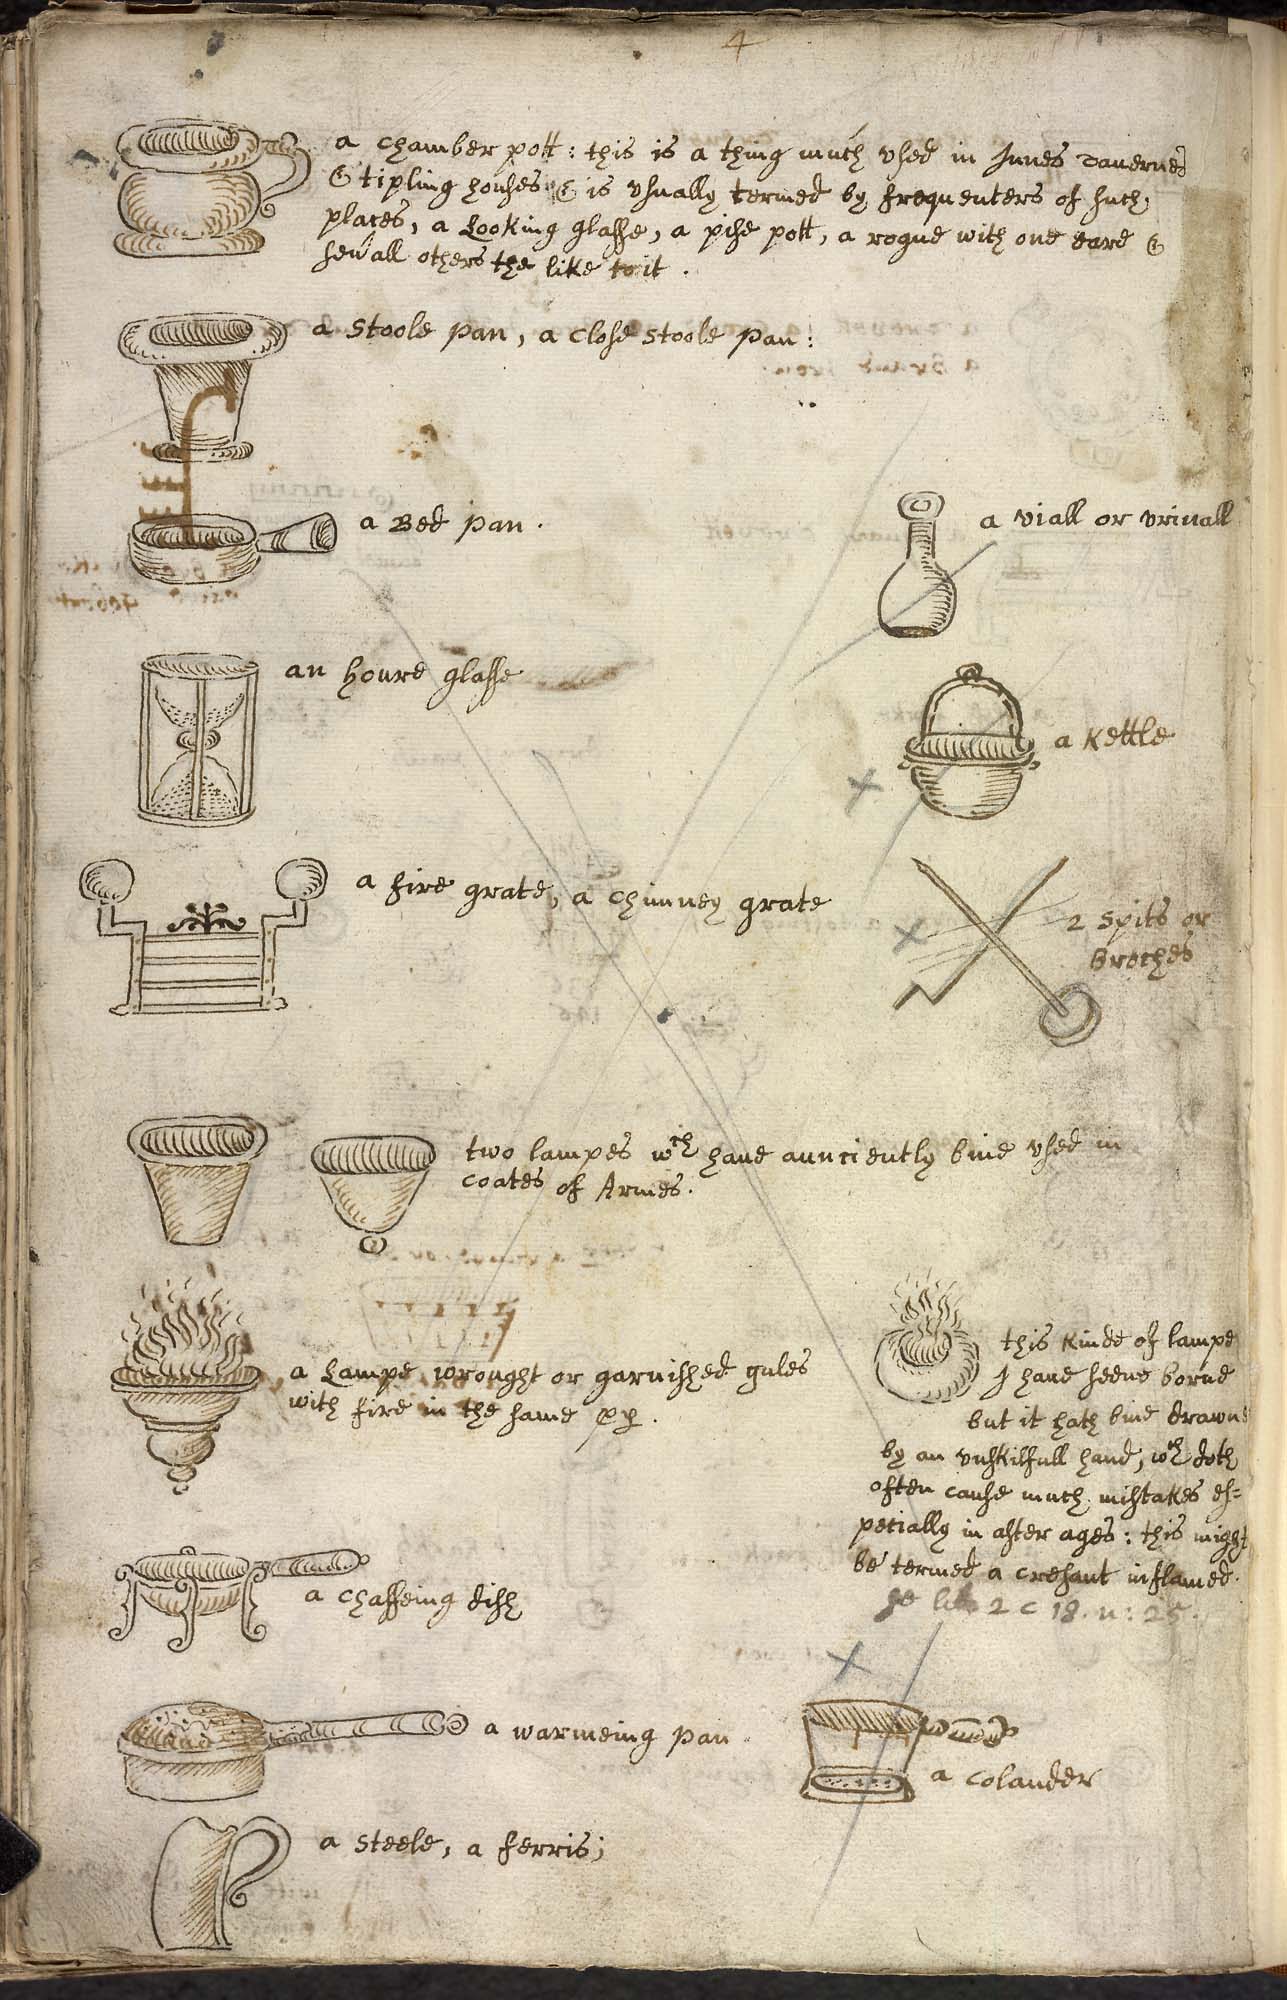 4
a Chamber pott: this is a thing much vsed in Innes Tavernes
& tipling houses & is vsually termed by frequenters of such
places, a Looking glasse, a pise pott, a rogue with one eare &
severall others the like to it.
a Stoole pan, a Close stoole pan:
a Bed pan.
a viall or vrinall
an houre glasse
a Kettle
a fire grate, a Chimney grate
2 Spits or
Broches
two lampes wch have aunciently bine vsed in
Coates of Armes.
a Lampe wrought or garnished gules
with fire in the same
this kinde of lampe
I have seene borne
but it hath bine drawne
by an vnskilfull hand, wch doth
often cause much mistakes es=
pecially in after ages: this might
be termed a Cresant inflamed.
se lib 2 c 18. n: 25.
a Chaffeing dish
a warmeing pan
a Colander
a steele, a ferris;